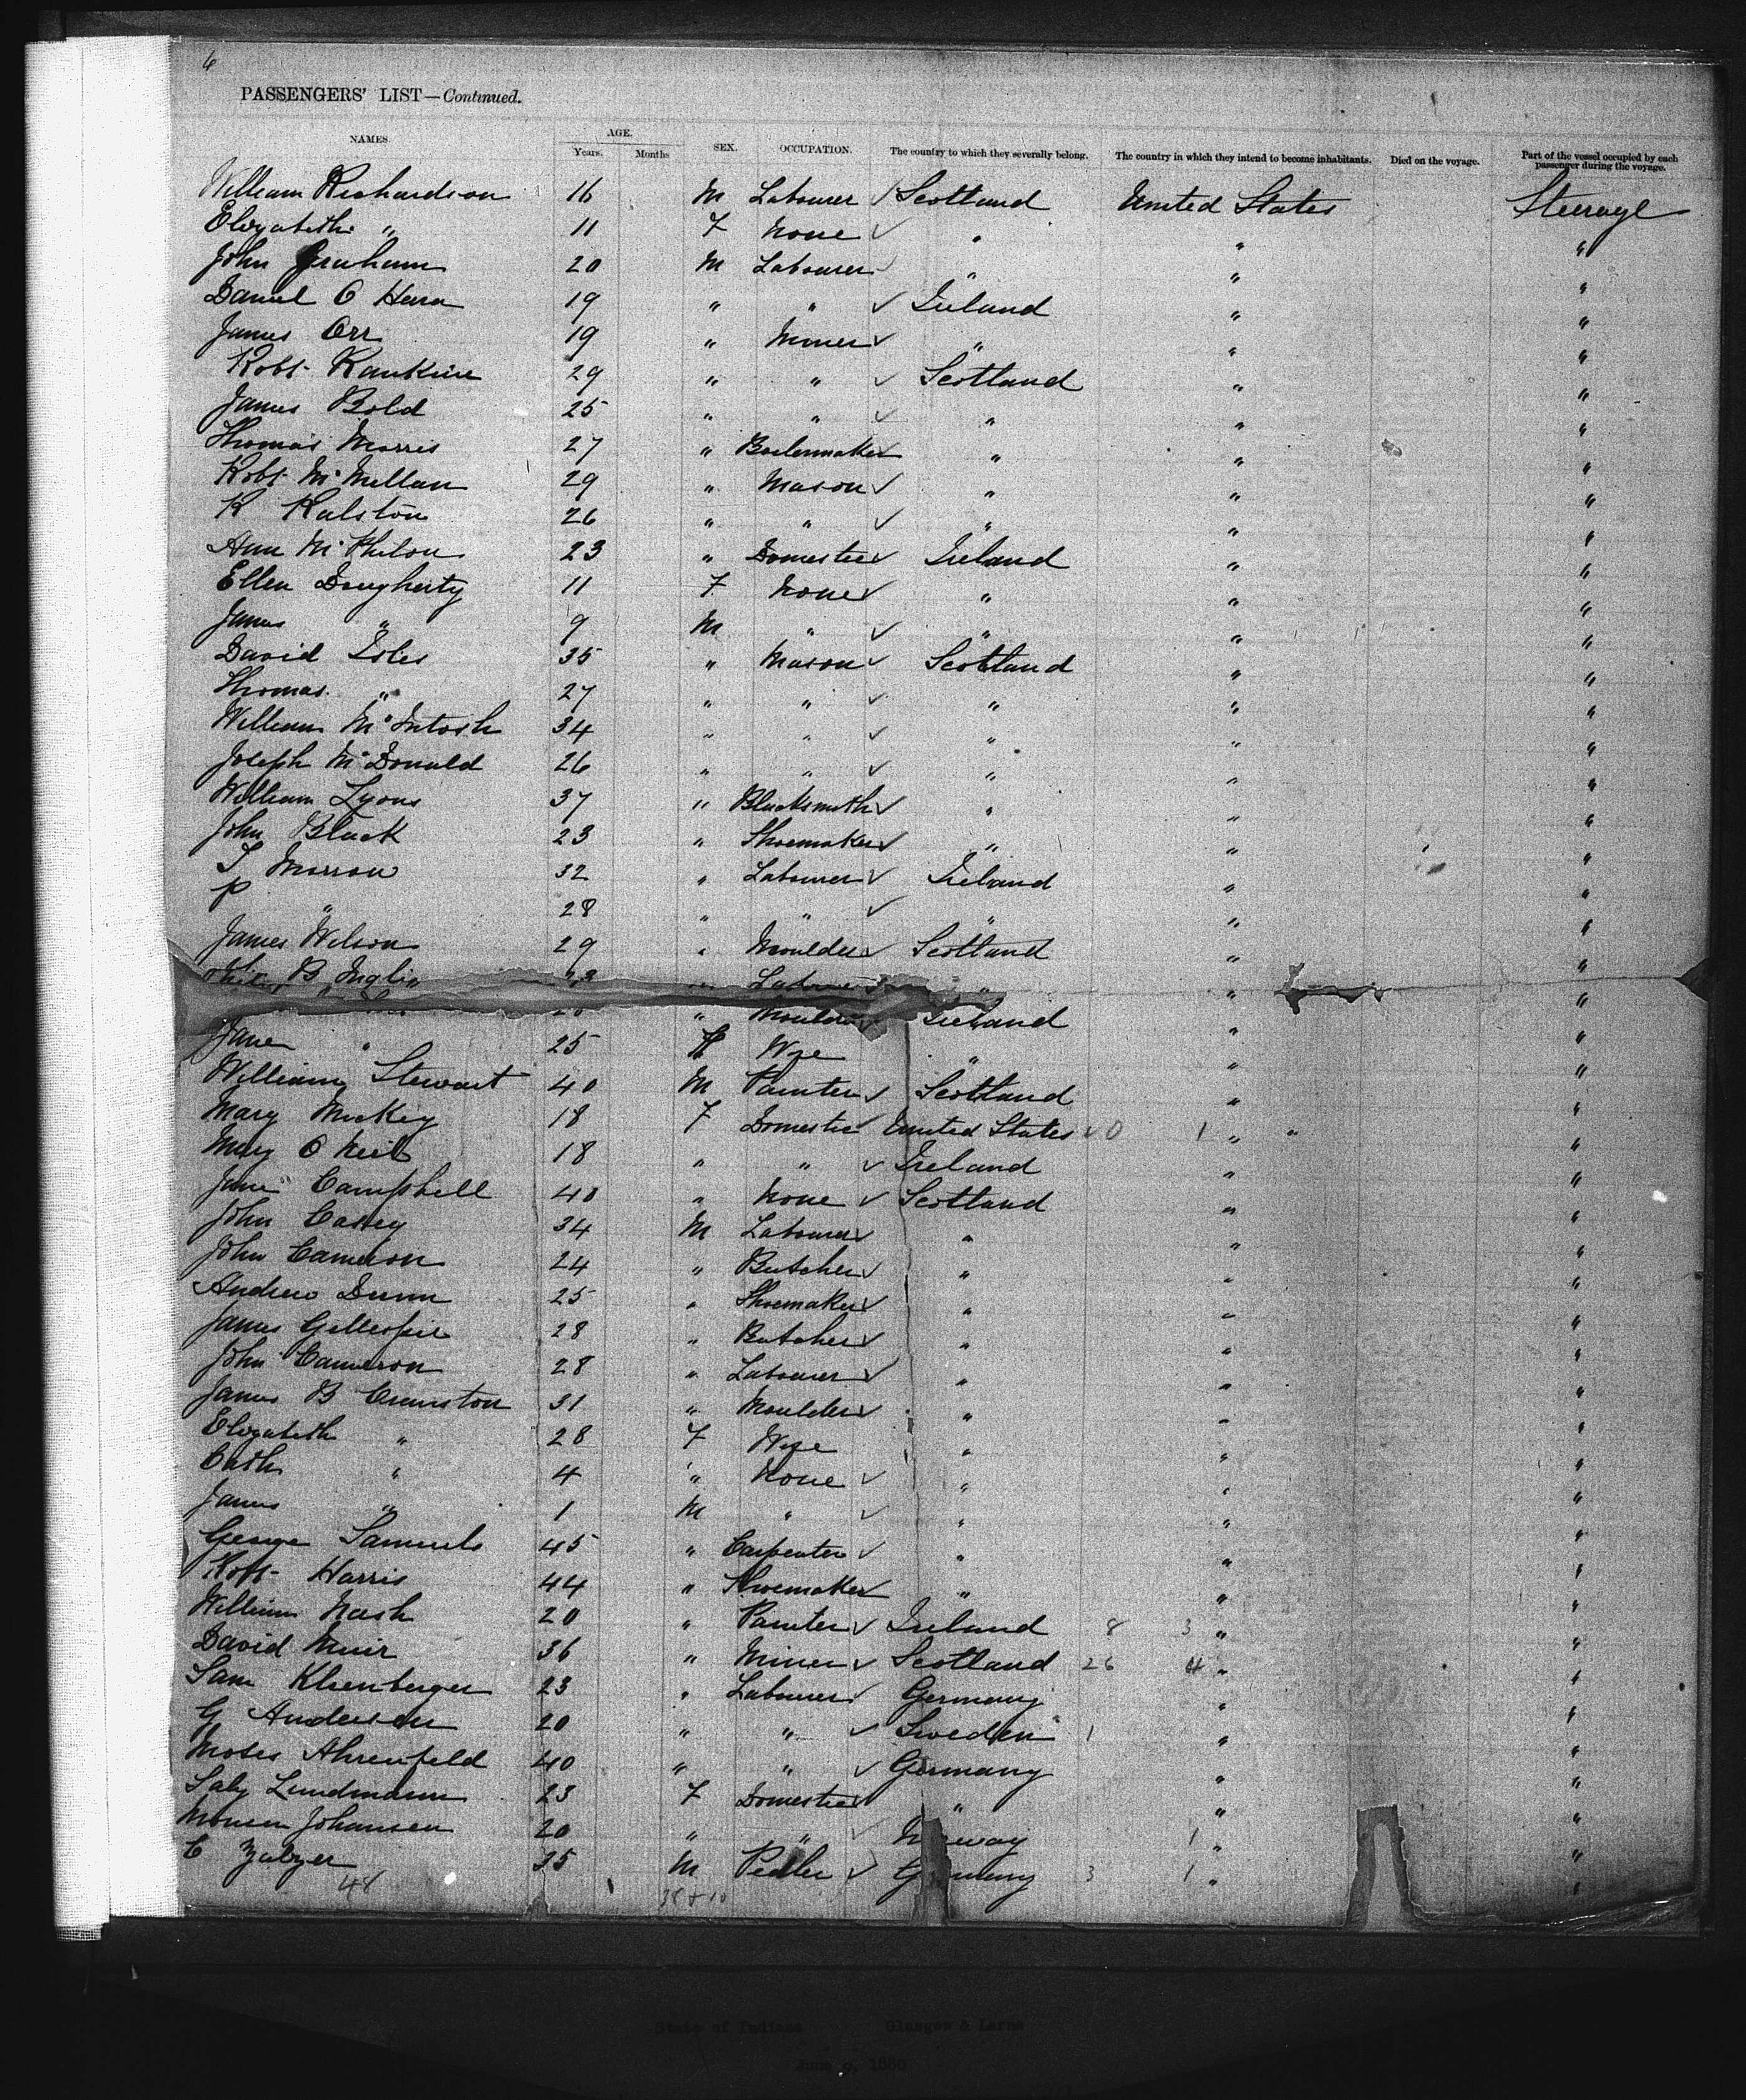 6
PASSENGERS' LIST—Continued.
NAMES. AGE. Years. Months SEX. OCCUPATION. The country to which they severally belong. The country in which they intend to become inhabitants. Died on the voyage. Part of the vessel occupied by each passenger during the voyage.
William Richardson 16 M Labourer ✓ Scotland United States Steerage
Elizabeth " 11 F None ✓ " " "
John Graham 20 M Labourer ✓ " " "
Daniel O Hara 19 " " ✓ Ireland " "
James Orr 19 " Miner ✓ " " "
Robt Rankine 29 " " ✓ Scotland " "
James Bold 25 " " ✓ " " "
Thomas Morris 27 " Boilermaker ✓ " " "
Robt McMillan 29 " Mason ✓ " " "
R Ralston 26 " " ✓ " " "
Ann McPhilon 23 " Domestic ✓ Ireland " "
Ellen Dougherty 11 F None ✓ " " "
James " 9 M " ✓ " " "
David Isles 35 " Mason ✓ Scotland " "
Thomas " 27 " " ✓ " " "
William McIntosh 34 " " ✓ " " "
Joseph McDonald 26 " " ✓ " " "
William Lyons 37 " Blacksmith ✓ " " "
John Black 23 " Shoemaker ✓ " " "
T Morrow 32 " Labourer ✓ Ireland " "
P " 28 " " ✓ " " "
James Wilson 29 " Moulder ✓ Scotland " "
B Inglis 23 " Labourer " " "
" Moulder Ireland " "
Jane " 25 F Wife " " "
William Stewart 40 M Painter ✓ Scotland " "
Mary Mickey 18 F Domestic United States ✓ 0 1 " "
Mary O Neil 18 " " ✓ Ireland " "
Jane Campbell 40 " None ✓ Scotland " "
John Casey 34 M Labourer ✓ " " "
John Cameron 24 " Butcher ✓ " " "
Andrew Dunn 25 " Shoemaker ✓ " " "
James Gillespie 28 " Butcher ✓ " " "
John Cameron 28 " Labourer ✓ " " "
James B Cranston 31 " Moulder ✓ " " "
Elizabeth " 28 F Wife " " "
Cath " 4 " None ✓ " " "
James " 1 M " ✓ " " "
George Samuels 45 " Carpenter ✓ " " "
Robt Harris 44 " Shoemaker ✓ " " "
William Nash 20 " Painter ✓ Ireland 8 3 " "
David Muir 36 " Miner ✓ Scotland 26 4 " "
Sam Klienberger 23 " Labourer ✓ Germany " "
G Andersen 20 " " ✓ Sweden 1 " "
Moses Ahrenfeld 40 " " ✓ Germany " "
Saly Lundmann 23 F Domestic ✓ " " "
Monsen Johansen 20 " " ✓ Norway 1 " "
C Zalzer 35 M Pedler ✓ Germany 3 1 " "
48 38 + 10
State of Indiana Glasgow & Larne
June 6, 1880